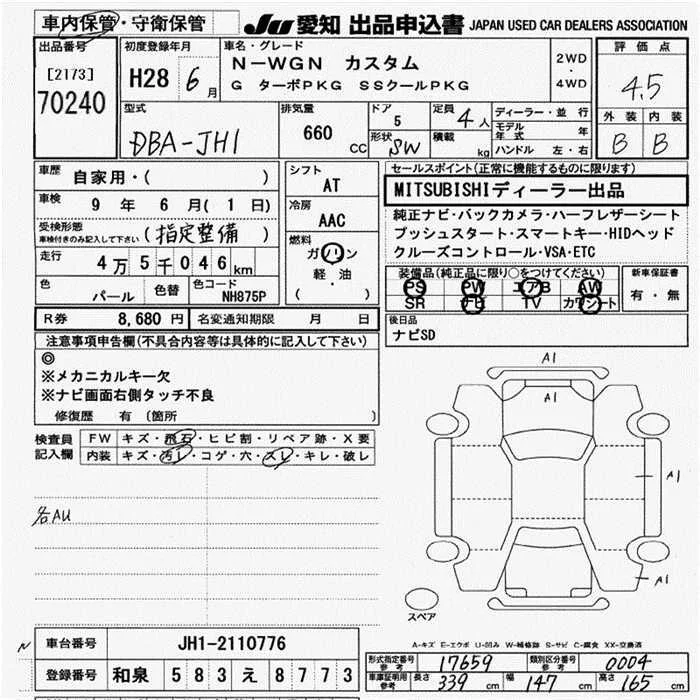 車内保管・守衛保管
JU 愛知 出品申込書 JAPAN USED CAR DEALERS ASSOCIATION
出品番号
[2173]
70240
初度登録年月
H28 6月
車名・グレード
N-WGN カスタム
G ターボPKG SSクールPKG
2WD
・
4WD
評価点
4.5
外装 内装
B B
型式
DBA-JH1
排気量
660 cc
ドア
5
形状
SW
定員
4人
積載
kg
ディーラー・並行
モデル年式 年
ハンドル 左・右
車歴
自家用・( )
車検
9年 6月(1日)
受検形態
車検付きのみ記入して下さい
(指定整備)
走行
4万5千046km
色
パール
色替
色コード
NH875P
シフト
AT
冷房
AAC
燃料
ガソリン
軽・油
( )
セールスポイント(正常に機能するものに限ります)
MITSUBISHIディーラー出品
純正ナビ・バックカメラ・ハーフレザーシート
プッシュスタート・スマートキー・HIDヘッド
クルーズコントロール・VSA・ETC
装備品(純正品に限り○をつけてください)
PS PW エアB AW
SR ナビ TV カワシート
新車保証書
有・無
R券 8,680円
名変通知期限 月 日
後日品
ナビSD
注意事項申告欄(不具合内容等は具体的に記入して下さい)
◎
※メカニカルキー欠
※ナビ画面右側タッチ不良
修復歴 有 (箇所 )
検査員
記入欄
FW キズ・飛石・ヒビ割・リペア跡・X要
内装 キズ・汚レ・コゲ・穴・スレ・キレ・破レ
各AU
A1
A1
A1
A1
スペア
A-キズ E-エクボ U-凹み W-補修跡 S-サビ C-腐食 XX-交換済
車台番号 JH1-2110776
登録番号 和泉 583 え 8773
形式指定番号
参考
17659
類別区分番号
参考
0004
車庫証明用
参考
長さ 339 cm
幅 147 cm
高さ 165 cm